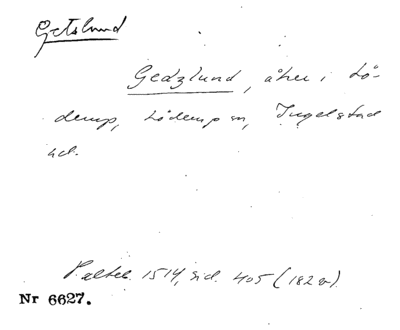 Getslund
Gedzlund, åker i Lö-
derup, Löderup sn, Ingelstad
hd.
Palteb. 1514, sid. 405 (182 v).
Nr 6627.